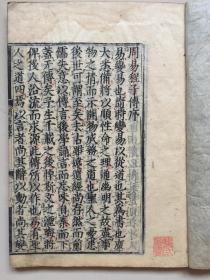 周易程子傳序
易變易也隨時變易以從道也其為書也廣
大悉備將以順性命之理通幽明之故盡事
物之情而示開物成務之道也聖人之憂患
後世可謂至矣去古雖遠遺經尚存然而前
儒失意以傳言後學誦言而忘味自秦而下
蓋無傳矣予生千載之後悼斯文之湮晦將
俾後人沿流而求源此傳所以作也易有聖
人之道四焉以言者尚其辭以動者尚其變